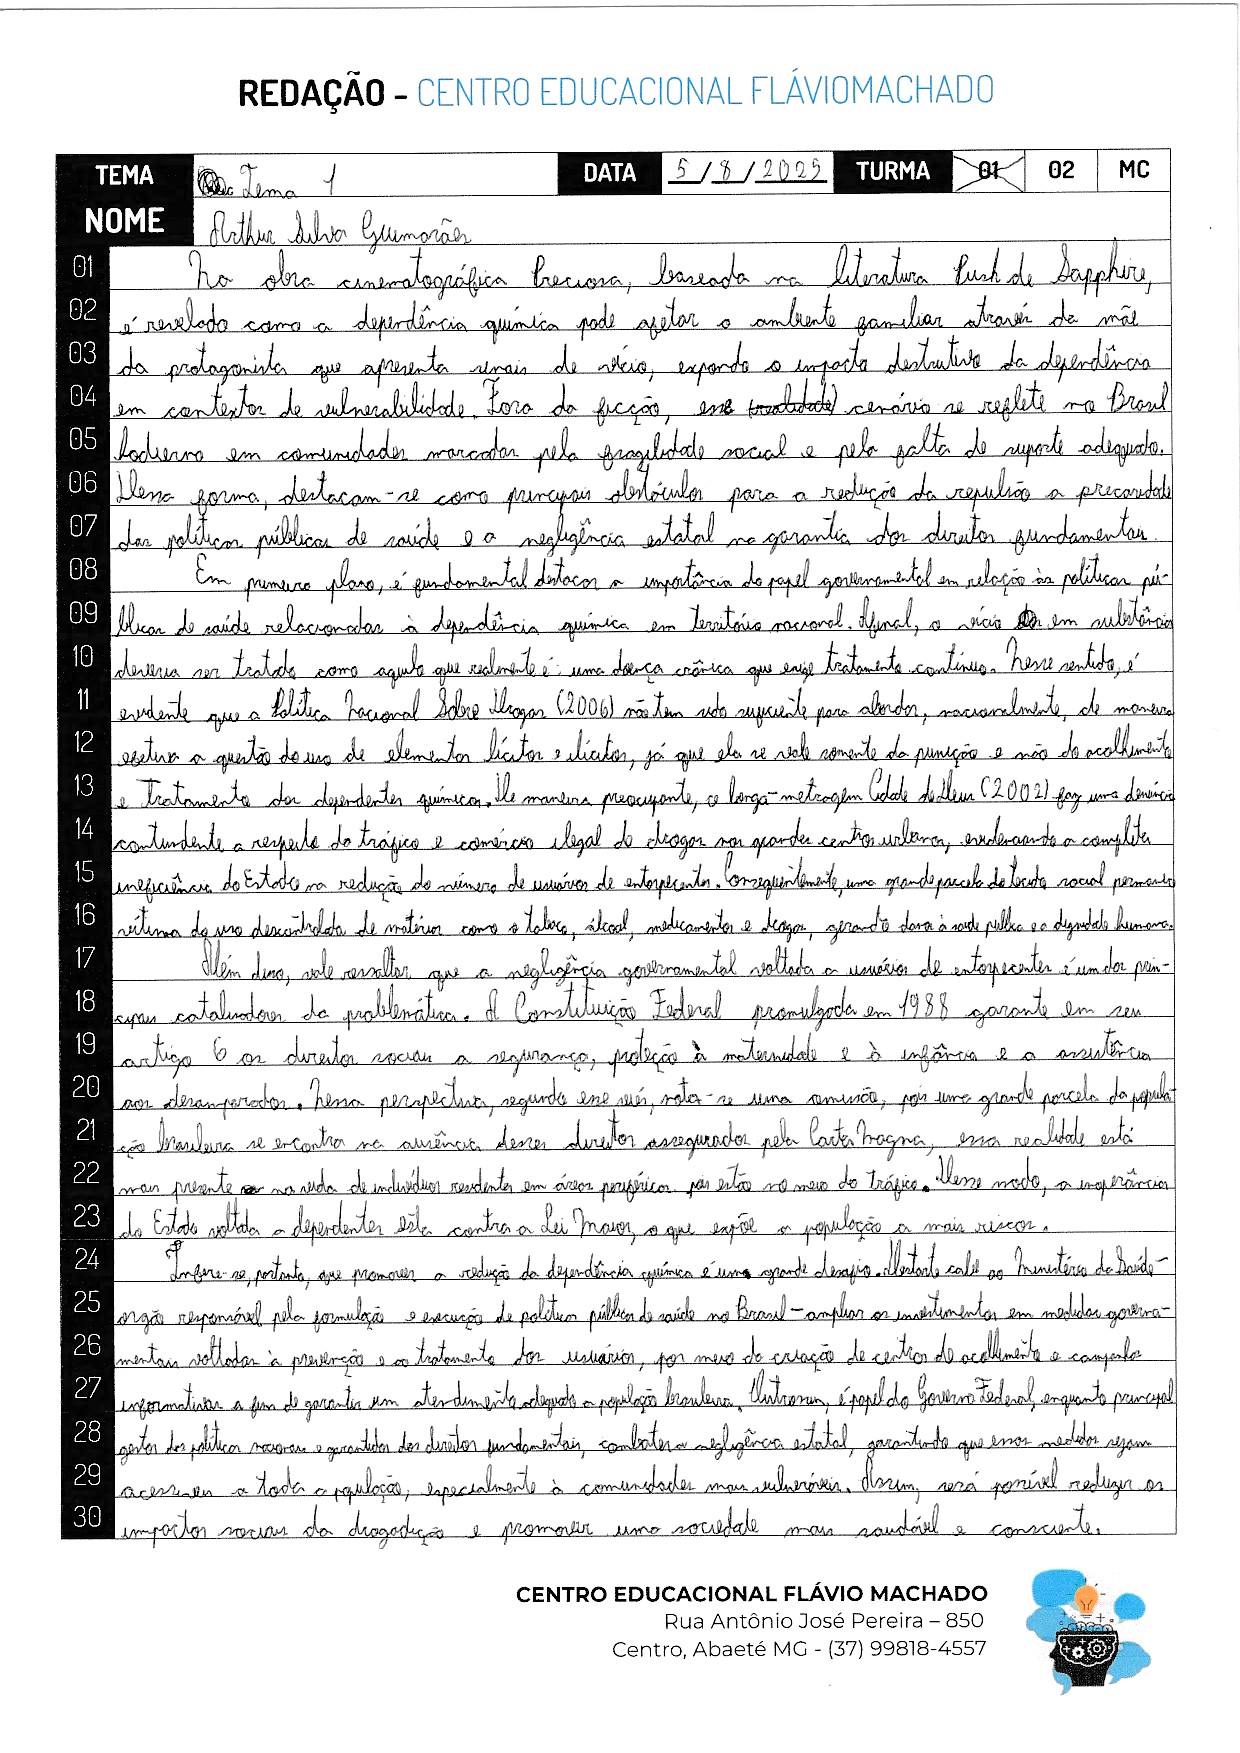 REDAÇÃO - CENTRO EDUCACIONAL FLÁVIOMACHADO
TEMA Tema 1 DATA 5/8/2025 TURMA 01 02 MC
NOME Arthur Silva Guimarães
01 Na obra cinematográfica Preciosa, baseada na literatura Push de Sapphire,
02 é revelado como a dependência química pode afetar o ambiente familiar através da mãe
03 da protagonista que apresenta sinais de vício, expondo o impacto destrutivo da dependência
04 em contextos de vulnerabilidade. Fora da ficção, esse (realidade) cenário se reflete no Brasil
05 hodierno em comunidades marcadas pela fragilidade social e pela falta de suporte adequado.
06 Dessa forma, destacam-se como principais obstáculos para a redução da repulsão a precariedade
07 das políticas públicas de saúde e a negligência estatal na garantia dos direitos fundamentais.
08 Em primeiro plano, é fundamental destacar a importância do papel governamental em relação às políticas pú-
09 blicas de saúde relacionadas à dependência química em território nacional. Afinal, o vício em substância
10 deveria ser tratado como aquilo que realmente é: uma doença crônica que exige tratamento contínuo. Nesse sentido, é
11 evidente que a Política Nacional Sobre Drogas (2006) não tem sido suficiente para abordar, nacionalmente, de maneira
12 efetiva a questão do uso de elementos lícitos e ilícitos, já que ela se vale somente da punição e não do acolhimento
13 e tratamento dos dependentes químicos. De maneira preocupante, o longa-metragem Cidade de Deus (2002) faz uma denúncia
14 contundente a respeito do tráfico e comércio ilegal de drogas nos grandes centros urbanos, evidenciando a completa
15 ineficiência do Estado na redução do número de usuários de entorpecentes. Consequentemente, uma grande parcela do tecido social permanece
16 vítima do uso descontrolado de matérias como o tabaco, álcool, medicamentos e drogas, gerando danos à saúde pública e a dignidade humana.
17 Além disso, vale ressaltar que a negligência governamental voltada a usuários de entorpecentes é um dos prin-
18 cipais catalisadores da problemática. A Constituição Federal promulgada em 1988 garante em seu
19 artigo 6 os direitos sociais a segurança, proteção à maternidade e à infância e a assistência
20 aos desamparados. Nessa perspectiva, segundo esse viés, nota-se uma omissão, pois uma grande parcela da popula
21 ção brasileira se encontra na ausência desses direitos assegurados pela Carta Magna, essa realidade está
22 mais presente na vida de indivíduos residentes em áreas periféricas pois estão no meio do tráfico. Desse modo, a inoperância
23 do Estado voltada a dependentes está contra a Lei Maior, o que expõe a população a mais riscos.
24 Infere-se, portanto, que promover a redução da dependência química é um grande desafio. Destarte cabe ao Ministério da Saúde -
25 orgão responsável pela formulação e execução de políticas públicas de saúde no Brasil - ampliar os investimentos em medidas governa-
26 mentais voltadas à prevenção e ao tratamento dos usuários, por meio da criação de centros de acolhimento e campanhas
27 informativas a fim de garantir um atendimento adequado a população brasileira. Outrossim, é papel do Governo Federal, enquanto principal
28 gestor das políticas e garantidor dos direitos fundamentais, combater a negligência estatal, garantindo que essas medidas sejam
29 acessíveis a toda a população, especialmente à comunidades mais vulneráveis. Assim, será possível reduzir os
30 impactos sociais da drogadição e promover uma sociedade mais saudável e consciente.
CENTRO EDUCACIONAL FLÁVIO MACHADO
Rua Antônio José Pereira – 850
Centro, Abaeté MG - (37) 99818-4557